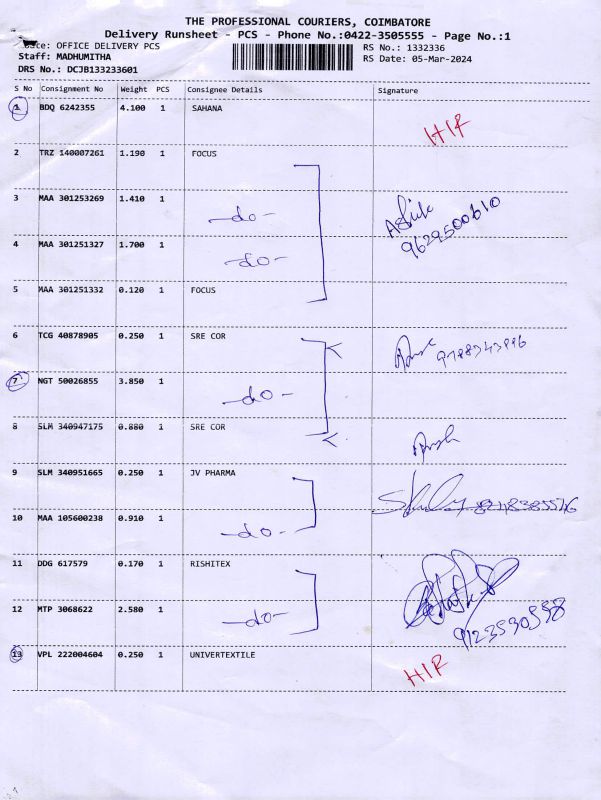 THE PROFESSIONAL COURIERS, COIMBATORE
Delivery Runsheet - PCS - Phone No.:0422-3505555 - Page No.:1
: OFFICE DELIVERY PCS
RS No.: 1332336
Staff: MADHUMITHA
RS Date: 05-Mar-2024
DRS No.: DCJB133233601
S No Consignment No Weight PCS Consignee Details Signature
1 BDQ 6242355 4.100 1 SAHANA
HIR
2 TRZ 140007261 1.190 1 FOCUS
3 MAA 301253269 1.410 1
-do-
9629500610
4 MAA 301251327 1.700 1
-do-
5 MAA 301251332 0.120 1 FOCUS
6 TCG 40878905 0.250 1 SRE COR
7 NGT 50026855 3.850 1
-do-
8 SLM 340947175 0.880 1 SRE COR
9 SLM 340951665 0.250 1 JV PHARMA
10 MAA 105600238 0.910 1
-do-
11 DDG 617579 0.170 1 RISHITEX
12 MTP 3068622 2.580 1
-do-
9123530558
13 VPL 222004604 0.250 1 UNIVERTEXTILE
HIR